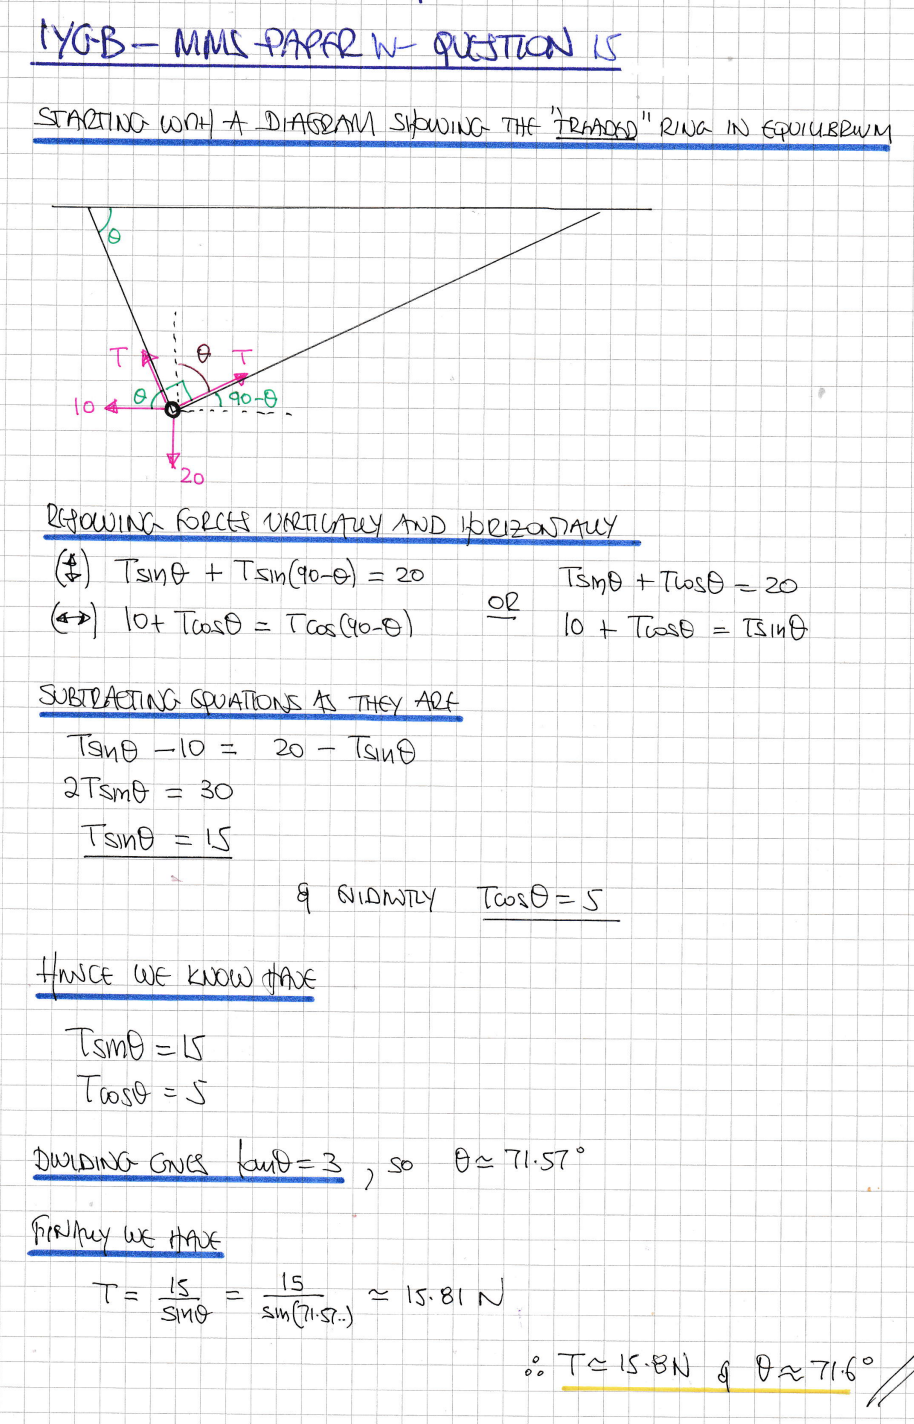 IYGB – MMS PAPER W – QUESTION 15
STARTING WITH A DIAGRAM SHOWING THE "TREADED" RING IN EQUILIBRIUM
θ
T θ T
θ 90-θ
10
20
RESOLVING FORCES VERTICALLY AND HORIZONTALLY
(↕) Tsinθ + Tsin(90-θ) = 20
(↔) 10 + Tcosθ = Tcos(90-θ)
OR
Tsinθ + Tcosθ = 20
10 + Tcosθ = Tsinθ
SUBTRACTING EQUATIONS AS THEY ARE
Tsinθ - 10 = 20 - Tsinθ
2Tsinθ = 30
Tsinθ = 15
& EVIDENTLY Tcosθ = 5
HENCE WE KNOW HAVE
Tsinθ = 15
Tcosθ = 5
DIVIDING GIVES tanθ = 3, so θ ≃ 71.57°
FINALLY WE HAVE
T = 15/sinθ = 15/sin(71.57..) ≃ 15.81 N
∴ T ≃ 15.8N & θ ≈ 71.6°